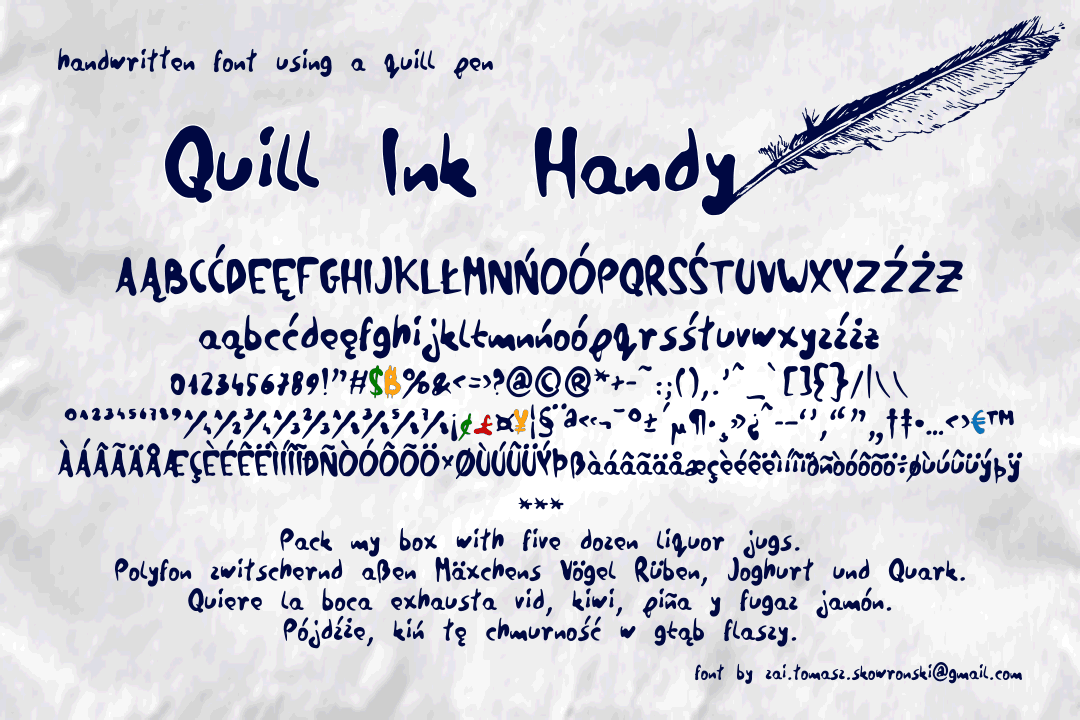 handwritten font using a quill pen
Quill Ink Handy
AĄBCĆDEĘFGHIJKLŁMNŃOÓPQRSŚTUVWXYZŹŻƵ
aąbcćdeęfghijklłmnńoópqrsśtuvwxyzźżƶ
0123456789!"#$₿%&<=>?@©®*+-~:;(),.'^_`[]{}/|\\
⁰¹²³⁴⁵⁶⁷⁸⁹¡¢£¤¥¦§¨ª«¬¯°±´µ¶·¸»¿ˆ–—‘’‚“”„†‡•…‹›€™
ÀÁÂÃÄÅÆÇÈÉÊËÌÍÎÏÐÑÒÓÔÕÖ×ØÙÚÛÜÝÞßàáâãäåæçèéêëìíîïðñòóôõö÷øùúûüýþÿ
***
Pack my box with five dozen liquor jugs.
Polyfon zwitschernd aßen Mäxchens Vögel Rüben, Joghurt und Quark.
Quiere la boca exhausta vid, kiwi, piña y fugaz jamón.
Pójdźże, kiń tę chmurność w głąb flaszy.
font by zai.tomasz.skowronski@gmail.com